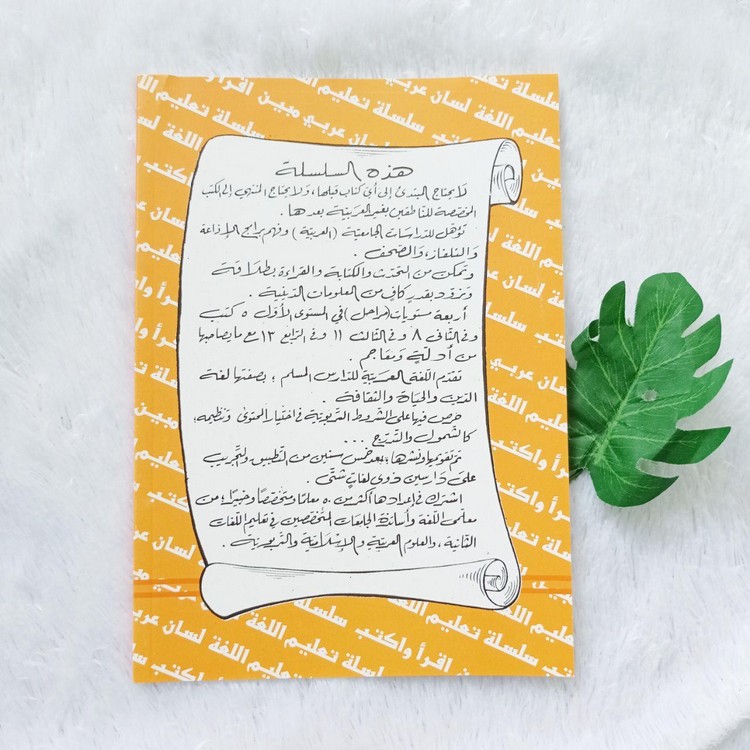 هذه السلسلة
لا يحتاج المبتدئ إلى أي كتاب قبلها، ولا يحتاج المنتهي إلى الكتب
المخصصة للناطقين بغير العربية بعدها.
تؤهل للدراسات الجامعية (العربية) وفهم برامج الإذاعة
والتلفاز، والصحف.
وتمكن من التحدث والكتابة والقراءة بطلاقة
وتزود بقدر كاف من العلومات الدينية.
أربعة مستويات (مراحل) في المستوى الأول ٥ كتب
وفي الثاني ٨ وفي الثالث ١١ وفي الرابع ١٢ مع ما يصاحبها
من أدلة ومعاجم.
تقدم اللغة العربية للدارس المسلم؛ بصفتها لغة
الدين والحياة والثقافة.
حرص فيها على الشروط التربوية في اختيار المحتوى وتنظيمه؛
كالشمول والتدرج ...
تم تقويمها ونشرها؛ بعد خمس سنين من التطبيق والتجريب
على دارسين ذوي لغات شتى.
اشترك في إعدادها أكثر من ٥٠ معلما ومتخصصا وخبيرا؛ من
معلمي اللغة وأساتذة الجامعات المتخصصين في تعليم اللغات
الثانية، والعلوم العربية والإسلامية والتربوية.
سلسلة تعليم اللغة لسان عربي مبين اقرأ واكتب